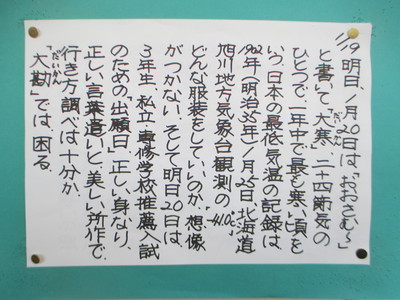 1/19 明日、1月20日は「おおさむ〜」
と書いて、大寒。二十四節気の
ひとつで、一年中で最も寒い頃を
いう。日本の最低気温の記録は
1902年(明治35年)1月25日、北海道
旭川地方気象台観測の-41.0℃。
どんな服装をしていいのか、想像
がつかない。そして明日20日は、
3年生、私立・専修学校推薦入試
のための出願日。正しい身なり、
正しい言葉遣いと、美しい所作で。
行き方調べは十分か。
だいかん
「大勘」では、困る。